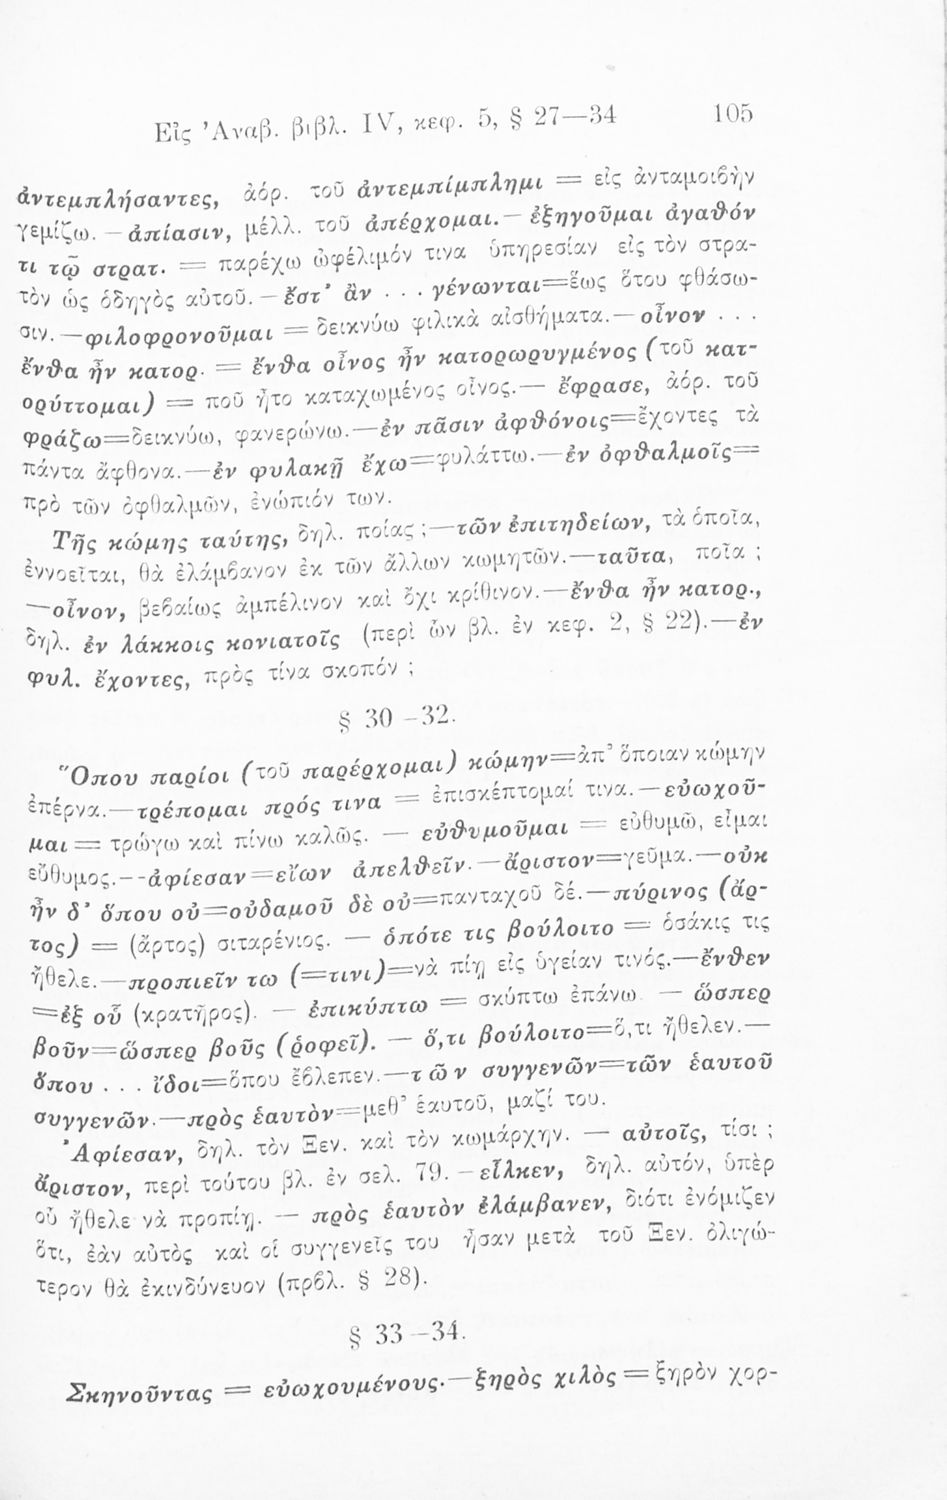 Εἰς Ἀναβ. βιβλ. IV, κεφ. 5, § 27—34 105
ἀντεμπλήσαντες, ἀόρ. τοῦ ἀντεμπίμπλημι = εἰς ἀνταμοιβὴν
γεμίζω. — ἀπίασιν, μέλλ. τοῦ ἀπέρχομαι. — ἐξηγοῦμαι ἀγαθόν
τι τῷ στρατ. = παρέχω ὠφέλιμόν τινα ὑπηρεσίαν εἰς τὸν στρα-
τὸν ὡς ὁδηγὸς αὐτοῦ. — ἔστ' ἂν . . . γένωνται=ἕως ὅτου φθάσω-
σιν. —φιλοφρονοῦμαι = δεικνύω φιλικὰ αἰσθήματα.— οἶνον . . .
ἔνθα ἦν κατορ. = ἔνθα οἶνος ἦν κατορωρυγμένος (τοῦ κατ-
ορύττομαι) = ποῦ ἦτο καταχωμένος οἶνος.— ἔφρασε, ἀόρ. τοῦ
φράζω=δεικνύω, φανερώνω.—ἐν πᾶσιν ἀφθόνοις=ἔχοντες τὰ
πάντα ἄφθονα.—ἐν φυλακῇ ἔχω=φυλάττω.—ἐν ὀφθαλμοῖς=
πρὸ τῶν ὀφθαλμῶν, ἐνώπιόν των.
Τῆς κώμης ταύτης, δηλ. ποίας ;—τῶν ἐπιτηδείων, τὰ ὁποῖα,
ἐννοεῖται, θὰ ἐλάμβανον ἐκ τῶν ἄλλων κωμητῶν.—ταῦτα, ποῖα ;
—οἶνον, βεβαίως ἀμπέλινον καὶ ὄχι κρίθινον.—ἔνθα ἦν κατορ.,
δηλ. ἐν λάκκοις κονιατοῖς (περὶ ὧν βλ. ἐν κεφ. 2, § 22).—ἐν
φυλ. ἔχοντες, πρὸς τίνα σκοπόν ;
§ 30 —32.
Ὅπου παρίοι (τοῦ παρέρχομαι) κώμην=ἀπ' ὅποιαν κώμην
ἐπέρνα.—τρέπομαι πρός τινα = ἐπισκέπτομαί τινα.—εὐωχοῦ-
μαι = τρώγω καὶ πίνω καλῶς. — εὐθυμοῦμαι = εὐθυμῶ, εἶμαι
εὔθυμος.--ἀφίεσαν=εἴων ἀπελθεῖν.—ἄριστον=γεῦμα.—οὐκ
ἦν δ' ὅπου οὐ=οὐδαμοῦ δὲ οὐ=πανταχοῦ δέ.—πύρινος (ἄρ-
τος) = (ἄρτος) σιταρένιος. — ὁπότε τις βούλοιτο = ὁσάκις τις
ἤθελε.—προπιεῖν τω (=τινι)=νὰ πίῃ εἰς ὑγείαν τινός.—ἔνθεν
=ἐξ οὗ (κρατῆρος). — ἐπικύπτω = σκύπτω ἐπάνω. — ὥσπερ
βοῦν=ὥσπερ βοῦς (ῥοφεῖ). — ὅ,τι βούλοιτο=ὅ,τι ἤθελεν.—
ὅπου . . . ἴδοι=ὅπου ἔβλεπεν.—τῶν συγγενῶν=τῶν ἑαυτοῦ
συγγενῶν.—πρὸς ἑαυτὸν=μεθ' ἑαυτοῦ, μαζί του.
Ἀφίεσαν, δηλ. τὸν Ξεν. καὶ τὸν κωμάρχην. — αὐτοῖς, τίσι ;
ἄριστον, περὶ τούτου βλ. ἐν σελ. 79. — εἷλκεν, δηλ. αὐτόν, ὑπὲρ
οὗ ἤθελε νὰ προπίῃ. — πρὸς ἑαυτὸν ἐλάμβανεν, διότι ἐνόμιζεν
ὅτι, ἐὰν αὐτὸς καὶ οἱ συγγενεῖς του ἦσαν μετὰ τοῦ Ξεν. ὀλιγώ-
τερον θὰ ἐκινδύνευον (πρβλ. § 28).
§ 33 —34.
Σκηνοῦντας = εὐωχουμένους.—ξηρὸς χιλὸς = ξηρὸν χορ-